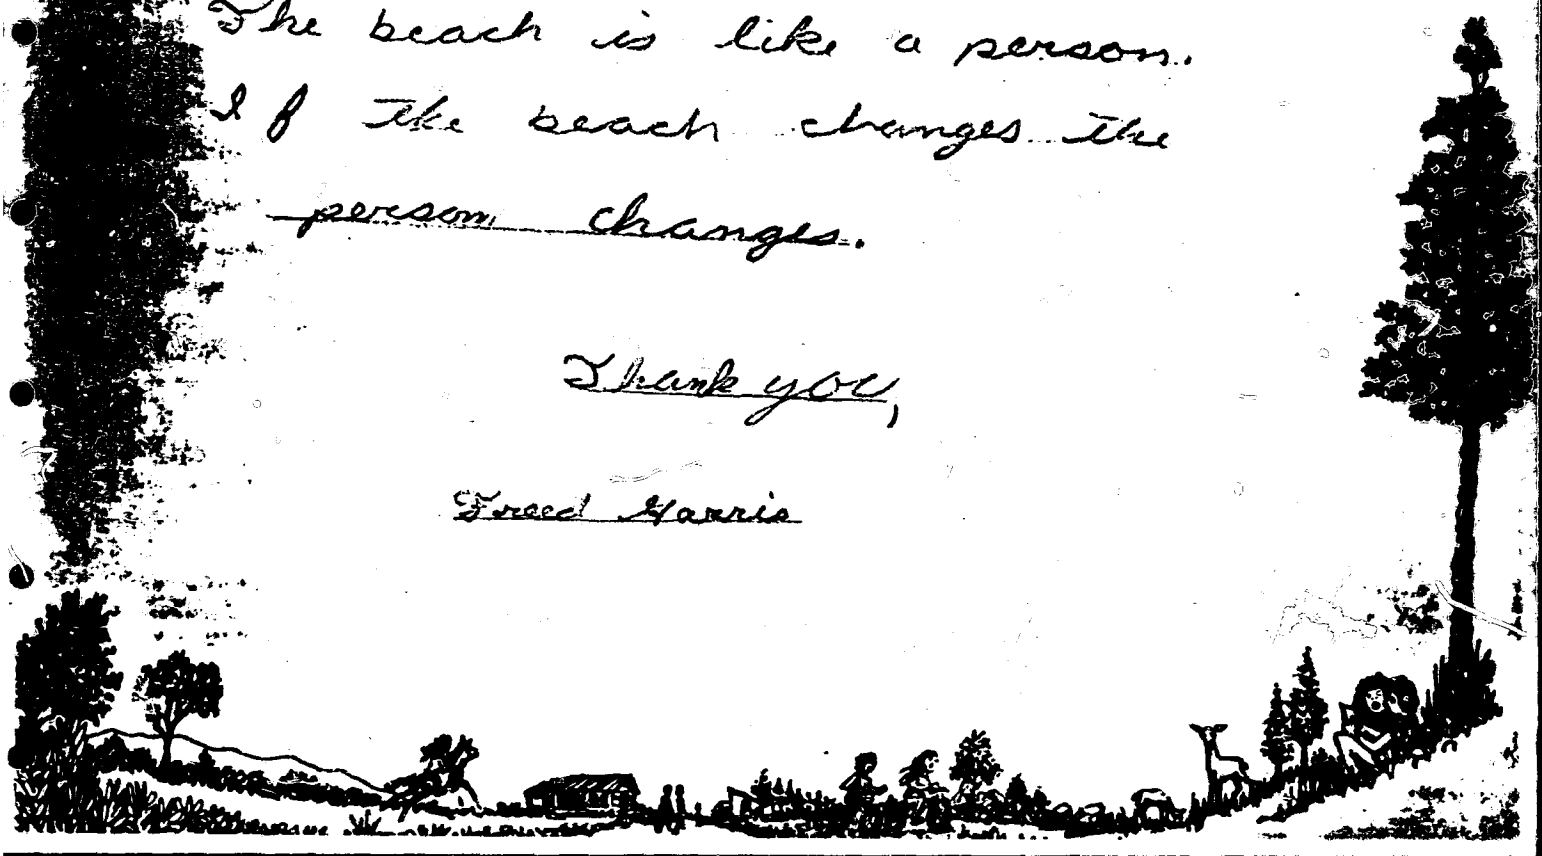 The beach is like a person.
If the beach changes the
person changes.
Thank you,
Freed Harris